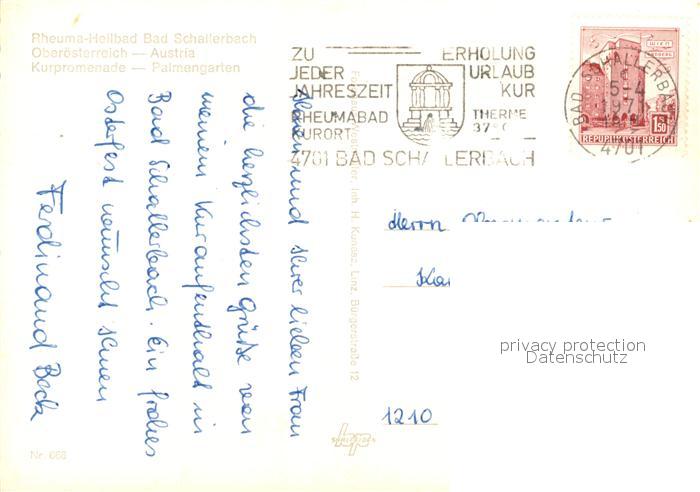 Rheuma-Heilbad Bad Schallerbach
Oberösterreich — Austria
Kurpromenade — Palmengarten
ZU ERHOLUNG
JEDER URLAUB
JAHRESZEIT KUR
RHEUMABAD THERME
KURORT
4701 BAD SCHALLERBACH
WIEN
BAD SCHALLERBACH
5-4
1971
4701
1.50
REPUBLIK ÖSTERREICH
Ihnen und Ihrer lieben Frau
die herzlichsten Grüße von
meinem Kuraufenthalt in
Bad Schallerbach. Ein frohes
Osterfest wünscht Ihnen
Ferdinand Beck
Inh. H. Kundaz, Linz, Bürgerstraße 12
Herrn
1210
privacy protection
Datenschutz
Nr. 068